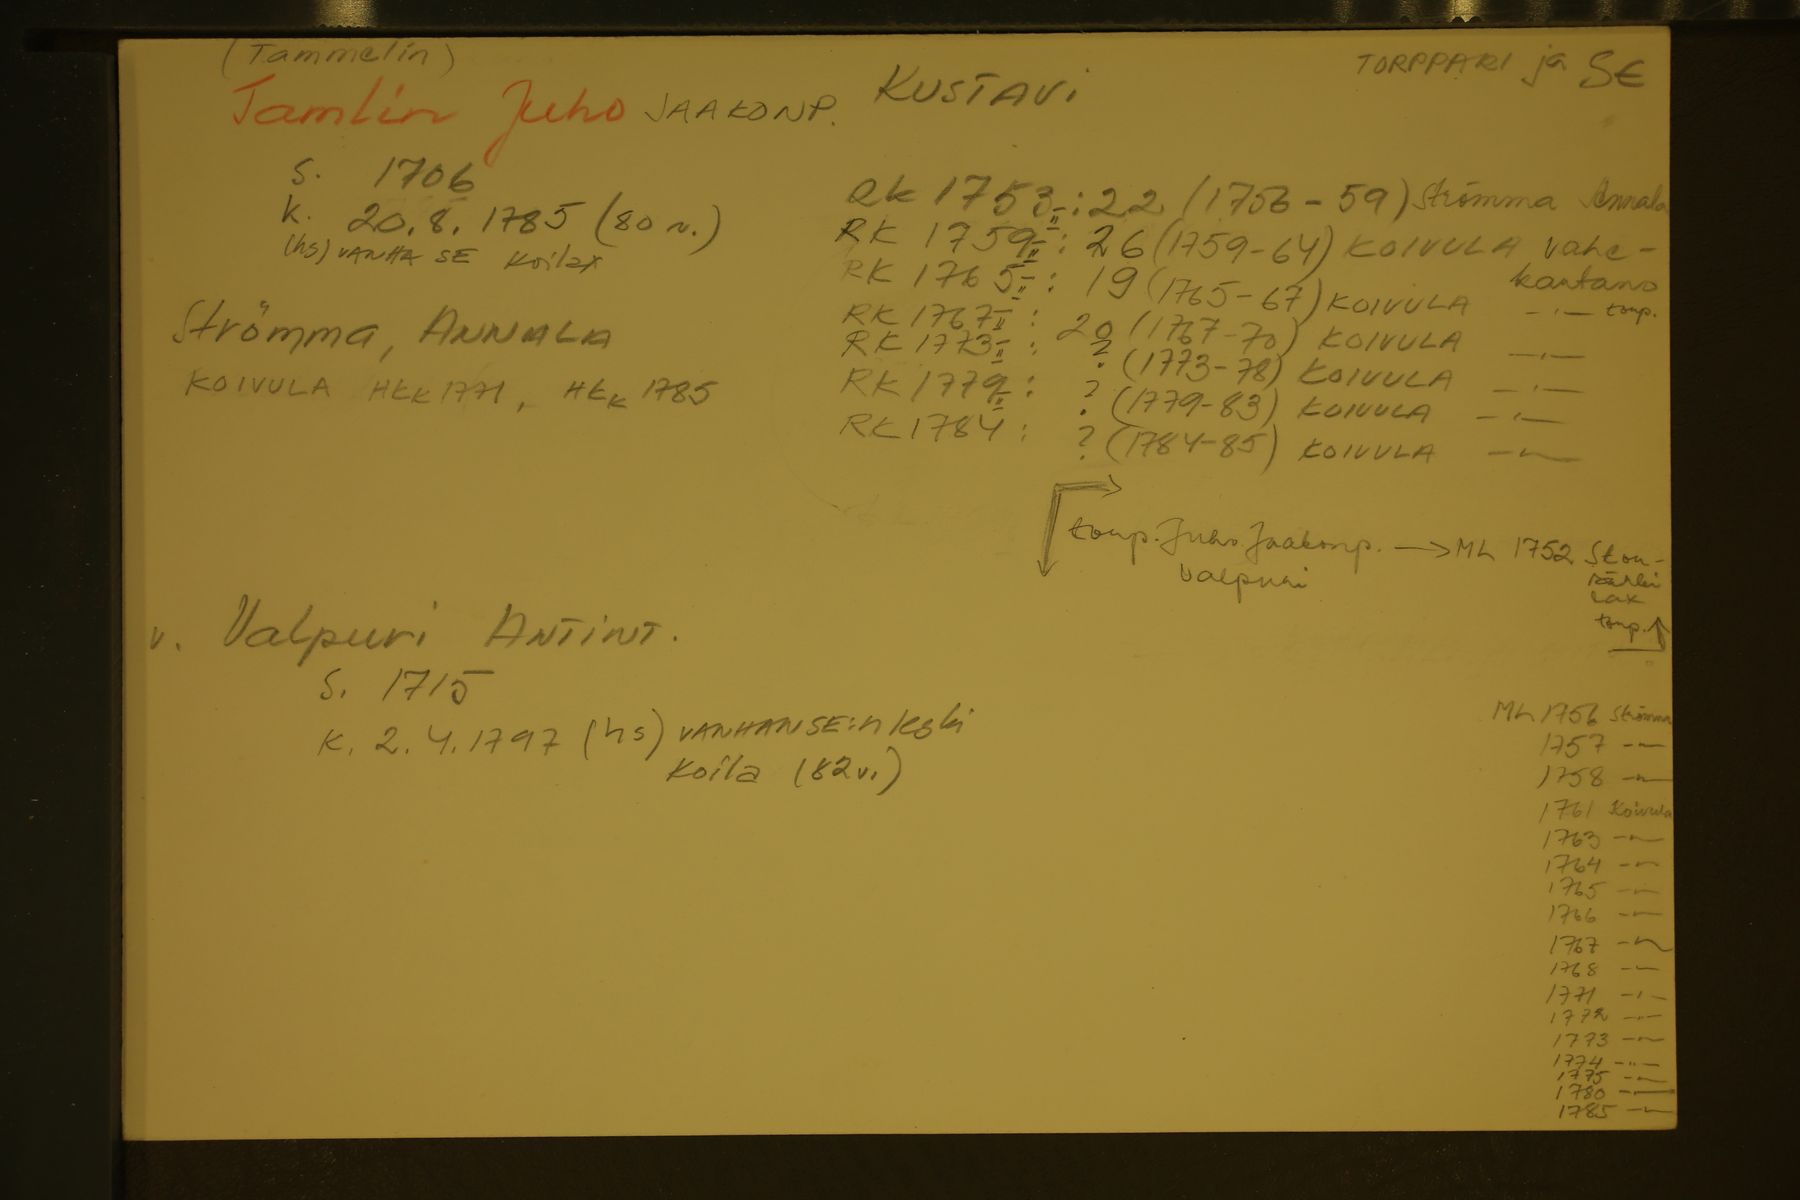 (Tammelin)
Tamlin Juho JAAKONP. KUSTAVI
TORPPARI ja SE
s. 1706
k. 20.8.1785 (80 v.)
(hs) VANHA SE Koilax
Strömma, ANNALA
KOIVULA HKK 1771, HKK 1785
RK 1753II: 22 (1756-59) Strömma Annala
RK 1759II: 26 (1759-64) KOIVULA vahe-
kartano
RK 1765II: 19 (1765-67) KOIVULA -"- torp.
RK 1767II: 20 (1767-70) KOIVULA -"-
RK 1773II: ? (1773-78) KOIVULA -"-
RK 1779II: ? (1779-83) KOIVULA -"-
RK 1784: ? (1784-85) KOIVULA -"-
torp. Juho Jaakonp. → ML 1752 Stor-
Valpuri
lax
torp. ↑
v. Valpuri ANTINT.
s. 1715
k. 2.4.1797 (hs) VANHAN SE:n leski
Koila (82 v.)
ML 1756 Strömma
1757 -"-
1758 -"-
1761 Koivula
1763 -"-
1764 -"-
1765 -"-
1766 -"-
1767 -"-
1768 -"-
1771 -"-
1772 -"-
1773 -"-
1774 -"-
1775 -"-
1780 -"-
1785 -"-